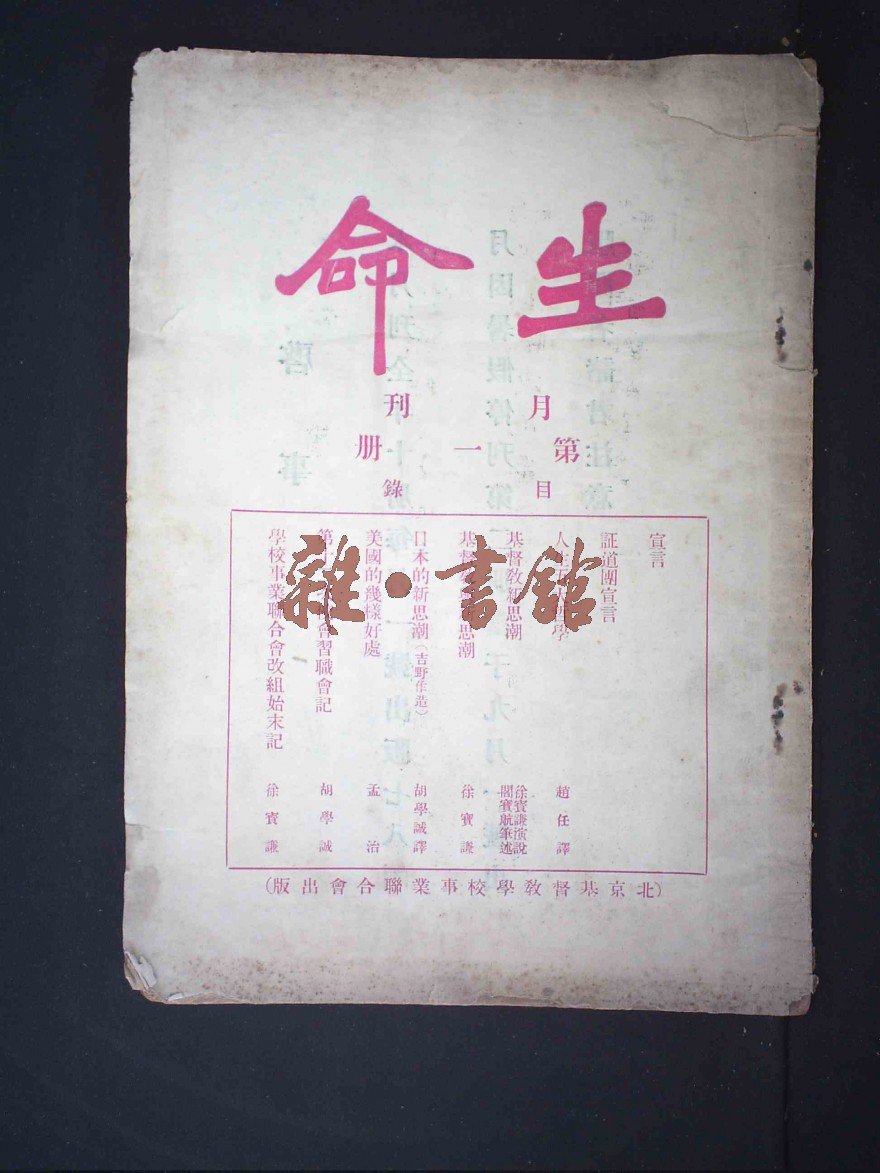 生命
月刊
第一册
目錄
宣言
証道團宣言
人生 學 趙任譯
基督敎新思潮 徐寶謙演說 閻寶航筆述
基督 思潮 徐寶謙
日本的新思潮（吉野作造） 胡學誠譯
美國的幾樣好處 孟治
第十 會習職會記 胡學誠
學校事業聯合會改組始末記 徐寶謙
（北京基督敎學校事業聯合會出版）
雜·書館